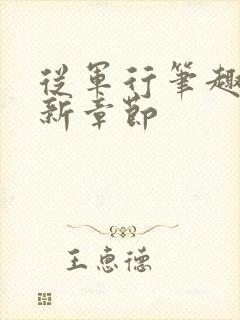 從軍行筆趣
新章節
王惠德